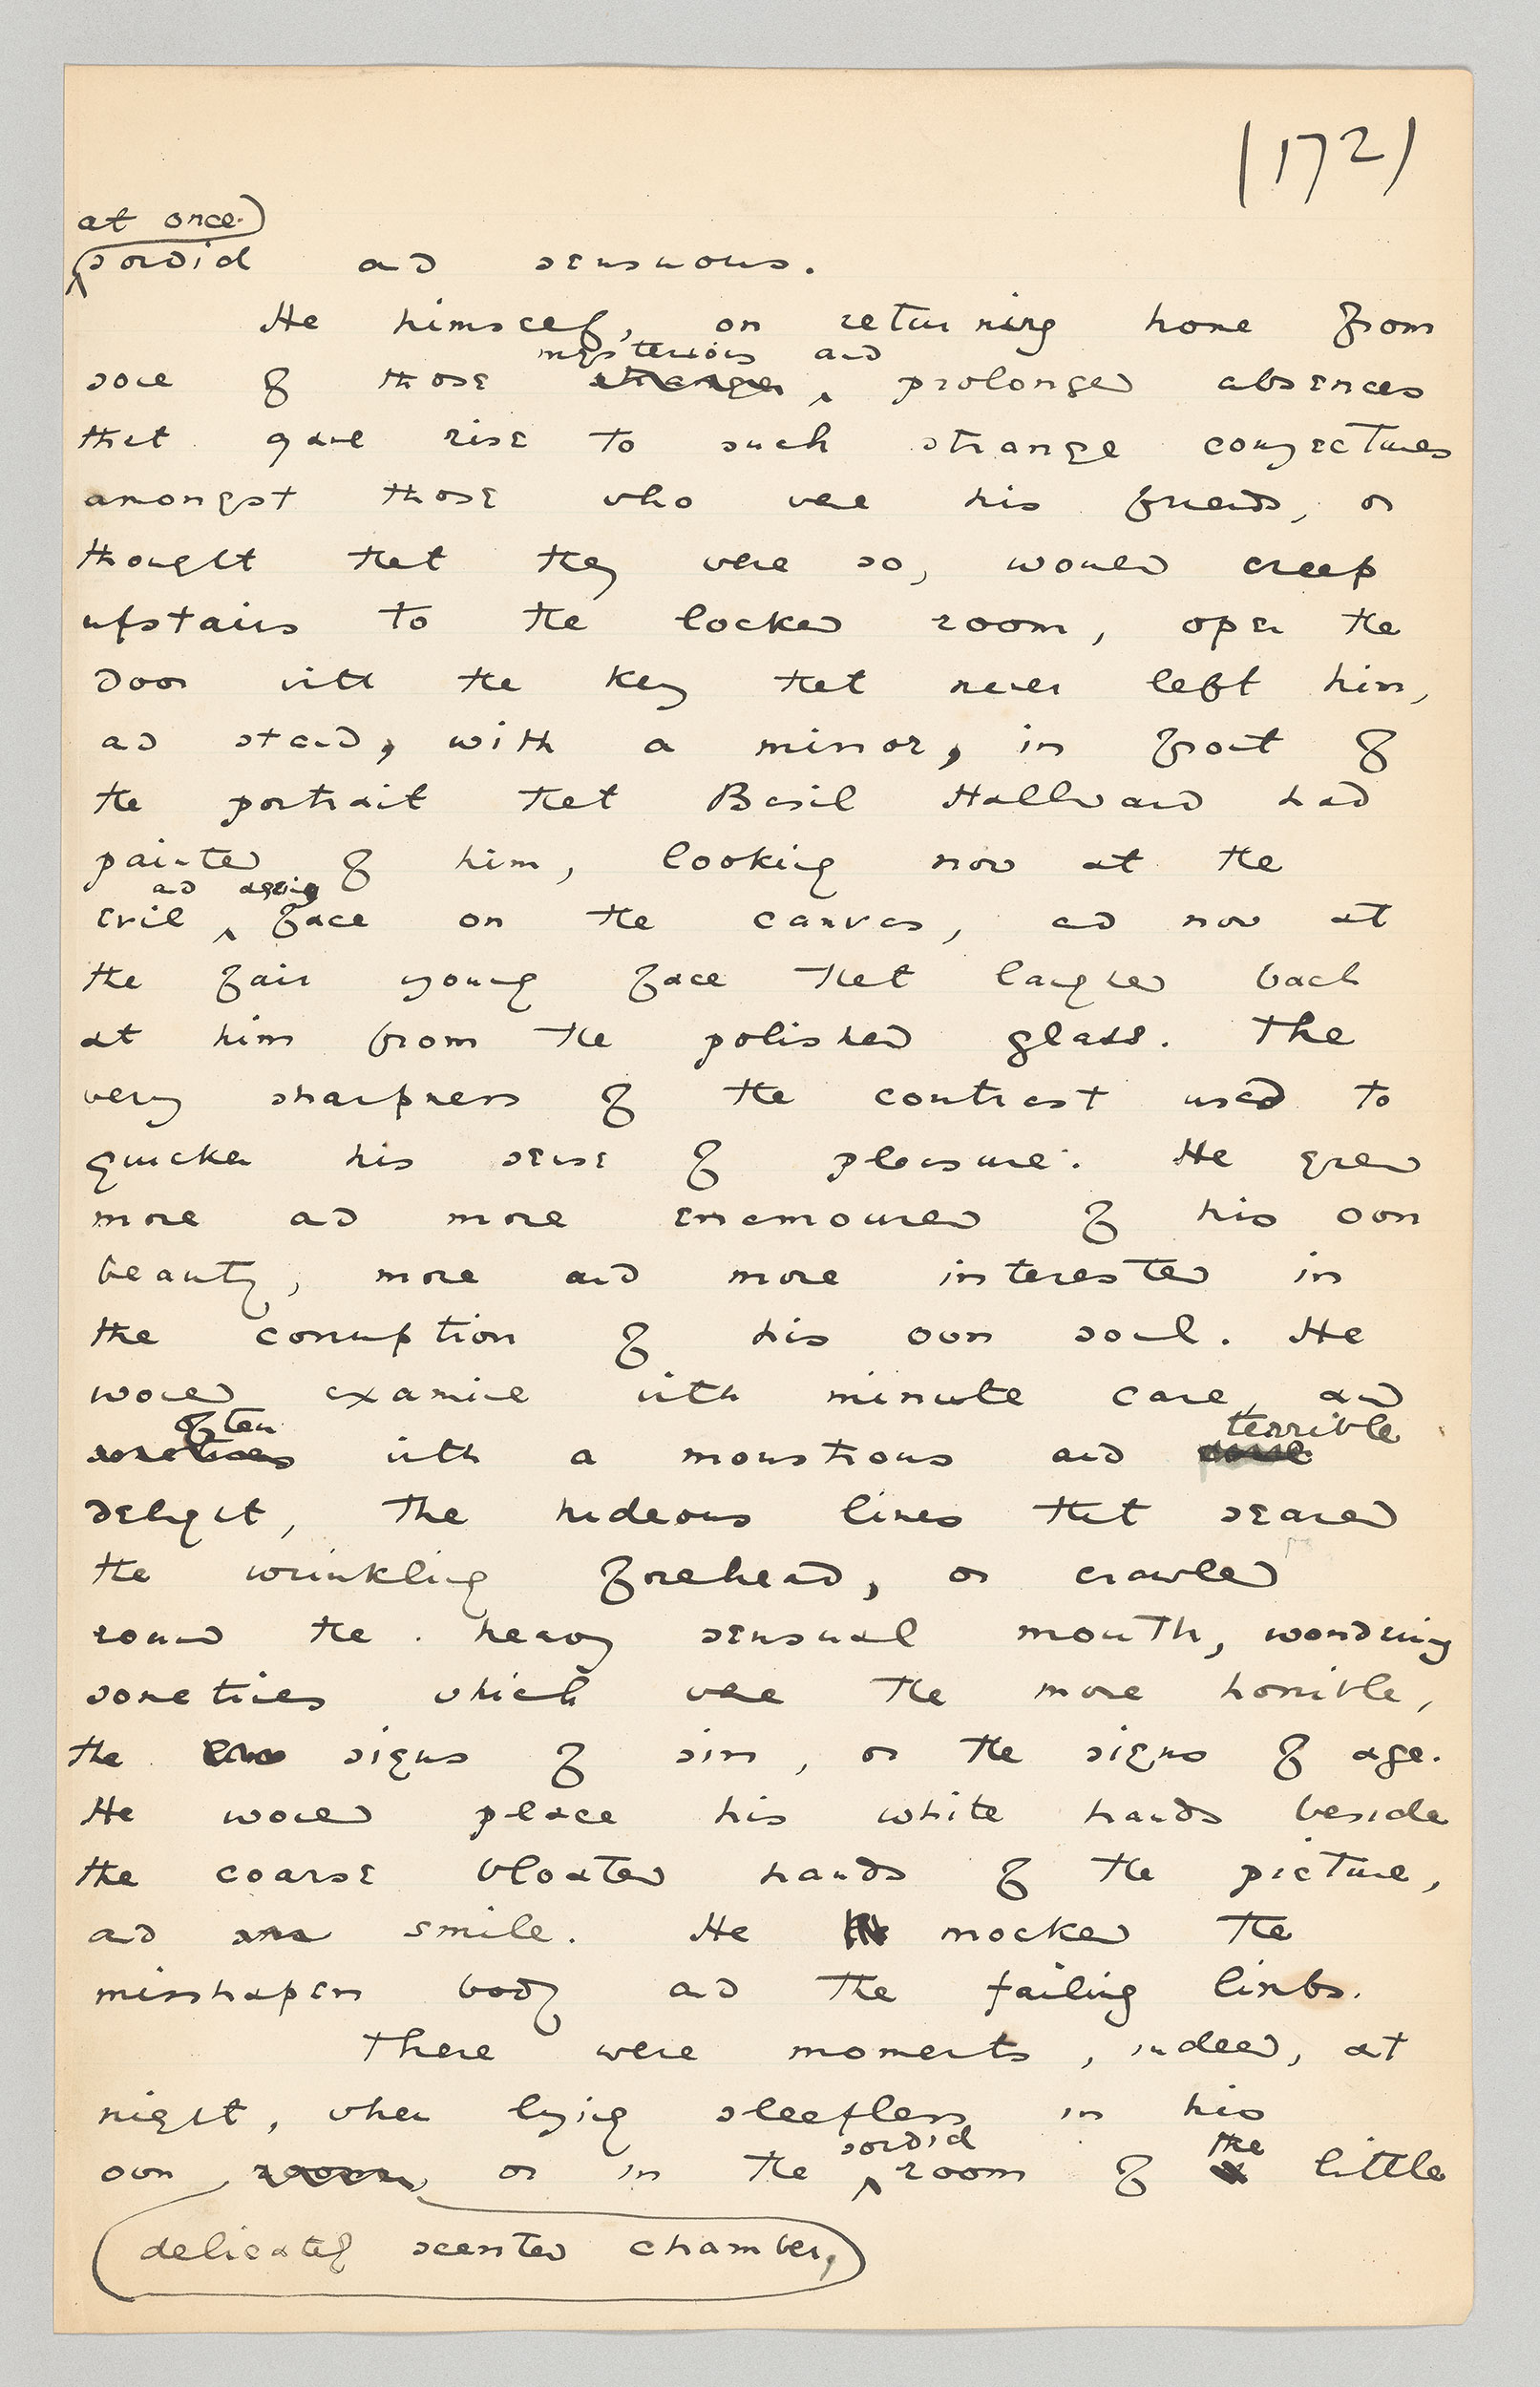 (172)
at once
sordid and sensuous.
He himself, on returning home from
mysterious and
some of those strange, prolonged absences
that gave rise to such strange conjectures
amongst those who were his friends, or
thought that they were so, would creep
upstairs to the locked room, open the
door with the key that never left him,
and stand, with a mirror, in front of
the portrait that Basil Hallward had
painted of him, looking now at the
and aging
evil face on the canvas, and now at
the fair young face that laughed back
at him from the polished glass. The
very sharpness of the contrast used to
quicken his sense of pleasure. He grew
more and more enamoured of his own
beauty, more and more interested in
the corruption of his own soul. He
would examine with minute care, and
often terrible
sometimes with a monstrous and
delight, the hideous lines that seared
the wrinkling forehead, or crawled
round the heavy sensual mouth, wondering
sometimes which were the more horrible,
the signs of sin, or the signs of age.
He would place his white hands beside
the coarse bloated hands of the picture,
and smile. He mocked the
misshapen body and the failing limbs.
There were moments, indeed, at
night, when lying sleepless in his
sordid the
own room, or in the room of a little
delicately scented chamber,